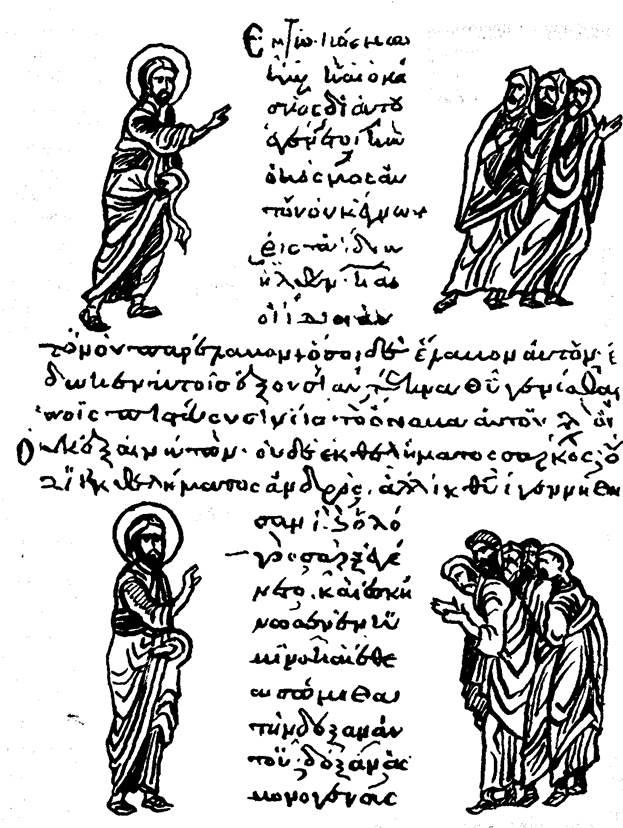 Ἐν τῷ κόσμω
ἦν καὶ ὁ κό
σμος δι αὐτοῦ
ἐγένετο καὶ
ὁ κόσμος αὐ
τὸν οὐκ ἔγνω
εἰς τὰ ἴδια
ἦλθεν καὶ
οἱ ἴδιοι αὐ
τὸν οὐ παρέλαβον ὅσοι δὲ ἔλαβον αὐτὸν ἔ
δωκεν αὐτοῖς ἐξουσίαν τέκνα θυ γενέσθαι
τοῖς πιστεύουσιν εἰς τὸ ὄνομα αὐτοῦ οἳ
οὐκ ἐξ αἱμάτων οὐδὲ ἐκ θελήματος σαρκὸς οὐ
δὲ ἐκ θελήματος ἀνδρὸς ἀλλ ἐκ θυ ἐγεννήθη
σαν καὶ ὁ λό
γος σὰρξ ἐγέ
νετο καὶ ἐσκή
νωσεν ἐν ἡμῖν
καὶ ἐθε
ασάμεθα
τὴν δόξαν αὐ
τοῦ δόξαν ὡς
μονογενοῦς